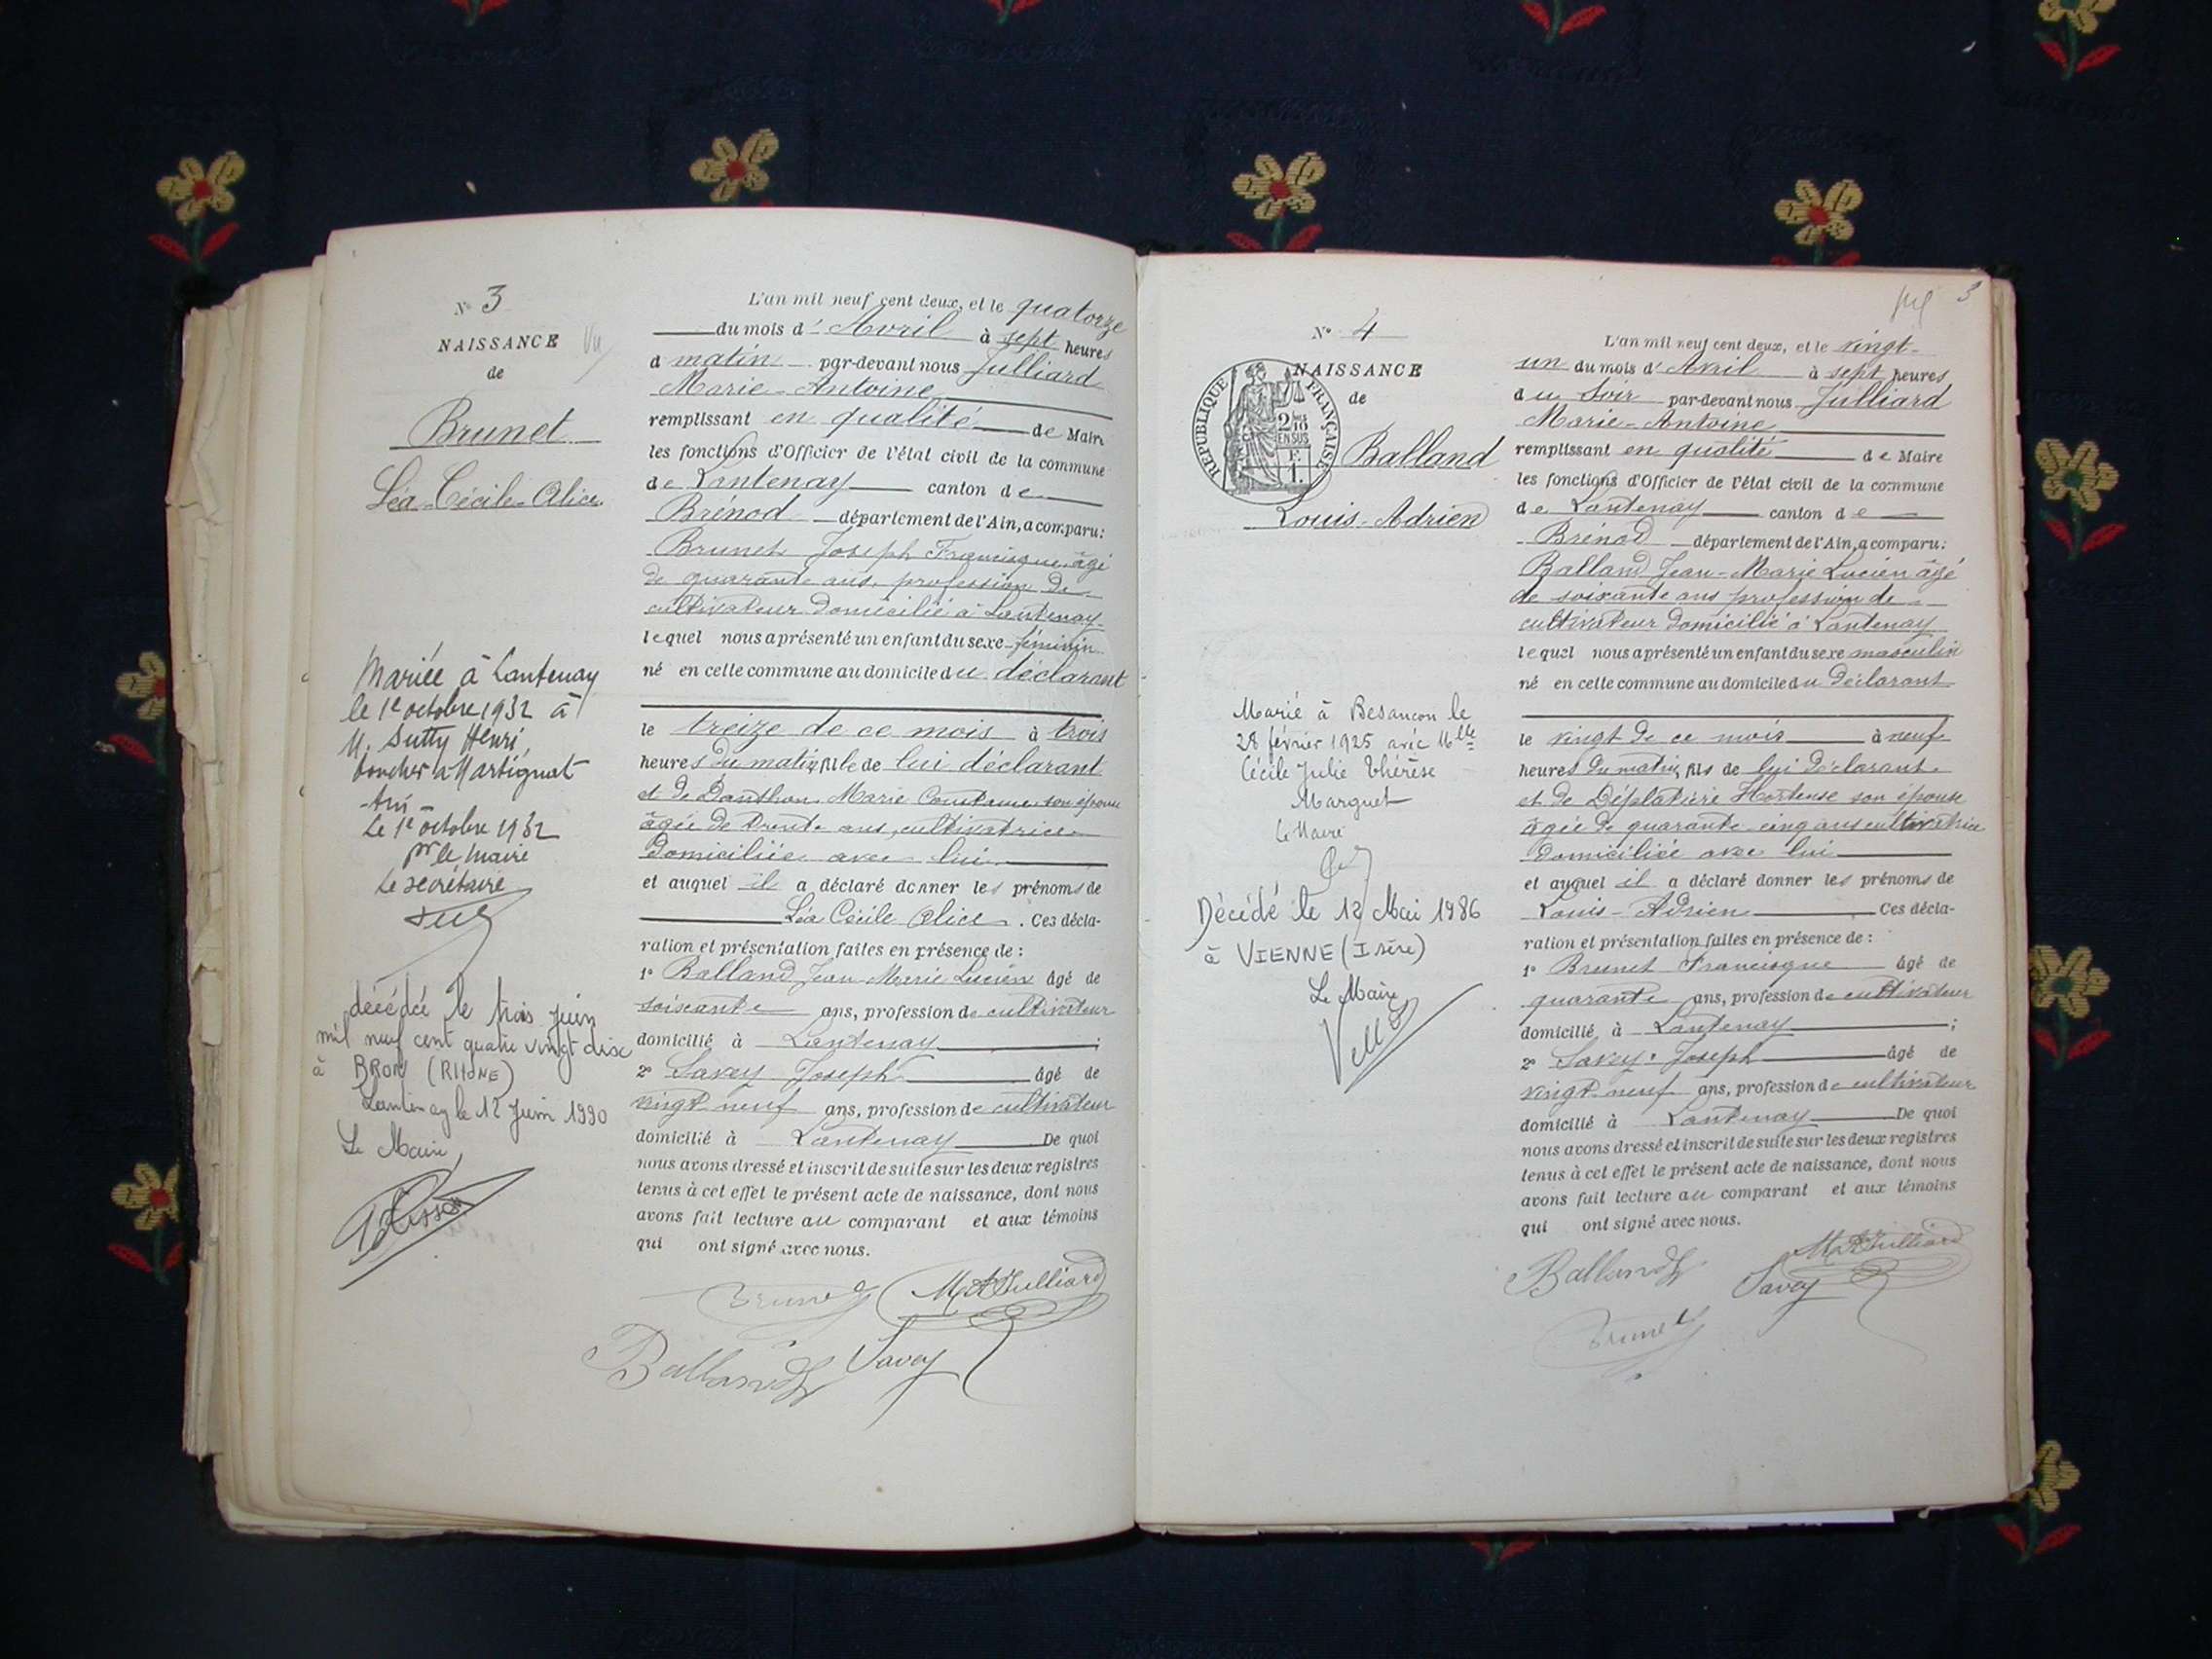 N° 3
NAISSANCE
de
Brunet
Léa-Cécile-Alice
Mariée à Lantenay
le 1e octobre 1932 à
M. Sutty Henri,
boucher à Martignat
Le 1e octobre 1932
pr le maire
Le secrétaire
décédée le trois juin
mil neuf cent quatre vingt dix
à BRON (RHONE)
Lantenay le 12 juin 1990
Le Maire,
L'an mil neuf cent deux, et le quatorze
du mois d' Avril à sept heures
d matin par-devant nous Julliard
Marie-Antoine
remplissant en qualité de Maire
les fonctions d'Officier de l'état civil de la commune
de Lantenay canton de
Brénod département de l'Ain, a comparu:
Brunet Joseph Francisque âgé
de quarante ans, profession de
cultivateur domicilié à Lantenay
lequel nous a présenté un enfant du sexe féminin
né en cette commune au domicile du déclarant
le treize de ce mois à trois
heures du matin, fille de lui déclarant
et de Danthon Marie son épouse
âgée de trente ans, cultivatrice
domiciliée avec lui
et auquel il a déclaré donner les prénoms de
Léa Cécile Alice. Ces décla-
ration et présentation faites en présence de:
1° Balland Jean Marie Lucien âgé de
soixante ans, profession de cultivateur
domicilié à Lantenay;
2° Savey Joseph âgé de
vingt neuf ans, profession de cultivateur
domicilié à Lantenay De quoi
nous avons dressé et inscrit de suite sur les deux registres
tenus à cet effet le présent acte de naissance, dont nous
avons fait lecture au comparant et aux témoins
qui ont signé avec nous.
Brunet MAJulliard
Balland Savey
3
N° 4
NAISSANCE
de
REPUBLIQUE FRANÇAISE
2/10
EN SUS
F.
1.
Balland
Louis-Adrien
Marié à Besançon le
28 février 1925 avec Mlle
Cécile Julie Thérèse
Marguet
Le Maire
Décédé le 12 Mai 1986
à VIENNE (Isère)
Le Maire
L'an mil neuf cent deux, et le vingt-
un du mois d' Avril à sept heures
du soir par-devant nous Julliard
Marie-Antoine
remplissant en qualité de Maire
les fonctions d'Officier de l'état civil de la commune
de Lantenay canton de
Brénod département de l'Ain, a comparu:
Balland Jean-Marie Lucien âgé
de soixante ans profession de
cultivateur domicilié à Lantenay
lequel nous a présenté un enfant du sexe masculin
né en cette commune au domicile du déclarant
le vingt de ce mois à neuf
heures du matin, fils de lui déclarant
et de Déplatière Hortense son épouse
âgée de quarante-cinq ans cultivatrice
domiciliée avec lui
et auquel il a déclaré donner les prénoms de
Louis-Adrien Ces décla-
ration et présentation faites en présence de:
1° Brunet Francisque âgé de
quarante ans, profession de cultivateur
domicilié à Lantenay;
2° Savey Joseph âgé de
vingt neuf ans, profession de cultivateur
domicilié à Lantenay De quoi
nous avons dressé et inscrit de suite sur les deux registres
tenus à cet effet le présent acte de naissance, dont nous
avons fait lecture au comparant et aux témoins
qui ont signé avec nous.
MAJulliard
Balland Savey
Brunet